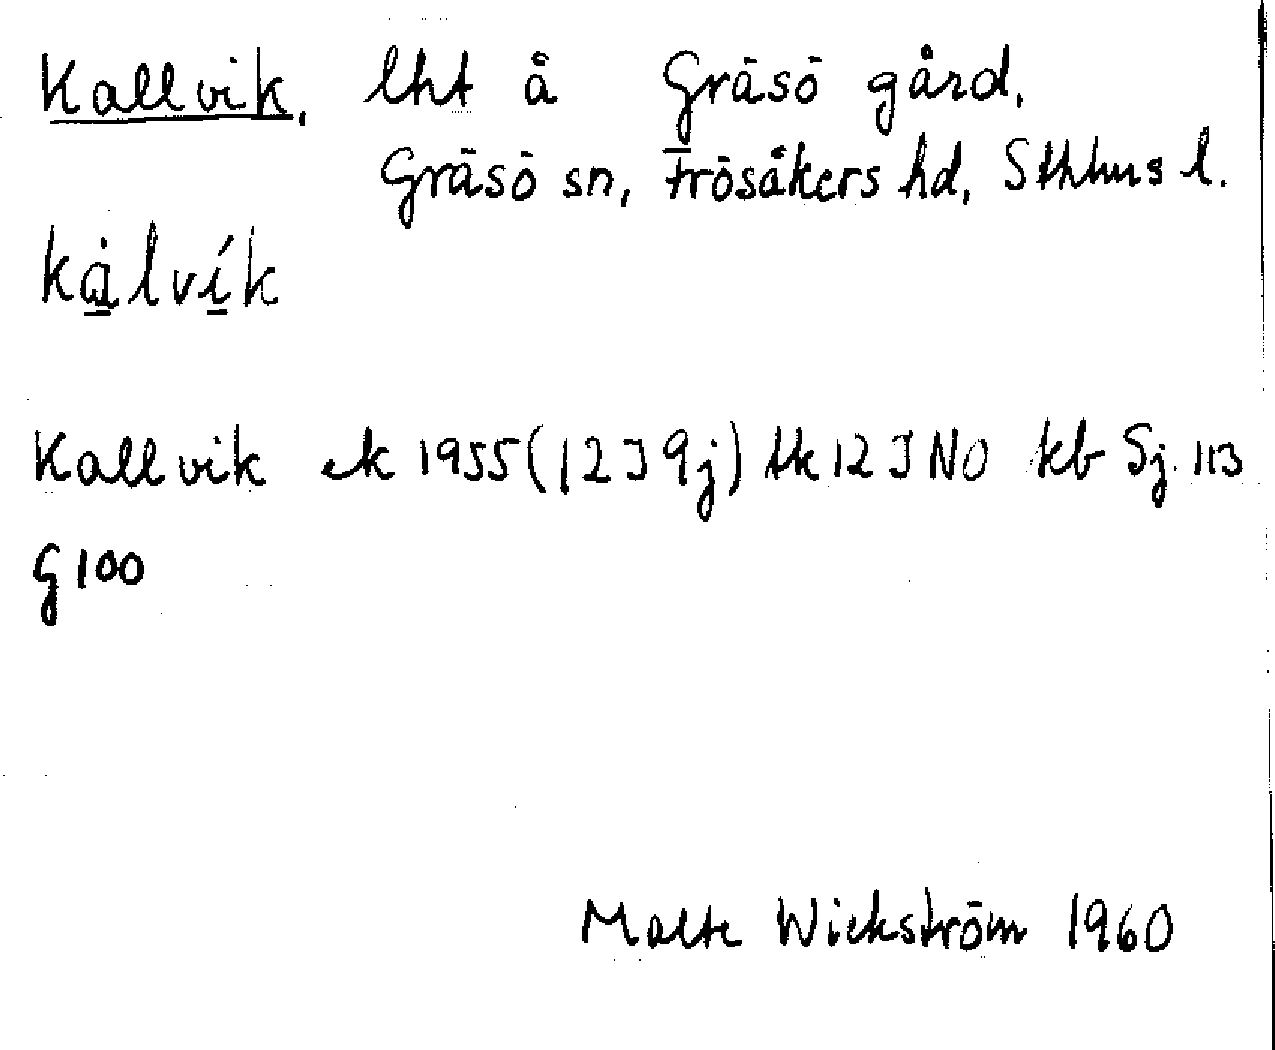 Kallvik, lht å Gräsö gård,
Gräsö sn, Frösåkers hd, Sthlms l.
kàlvík
Kallvik ek 1955 (12 J 9j) tk 12 J NO kb Sj. 113
G 100
Malte Wickström 1960